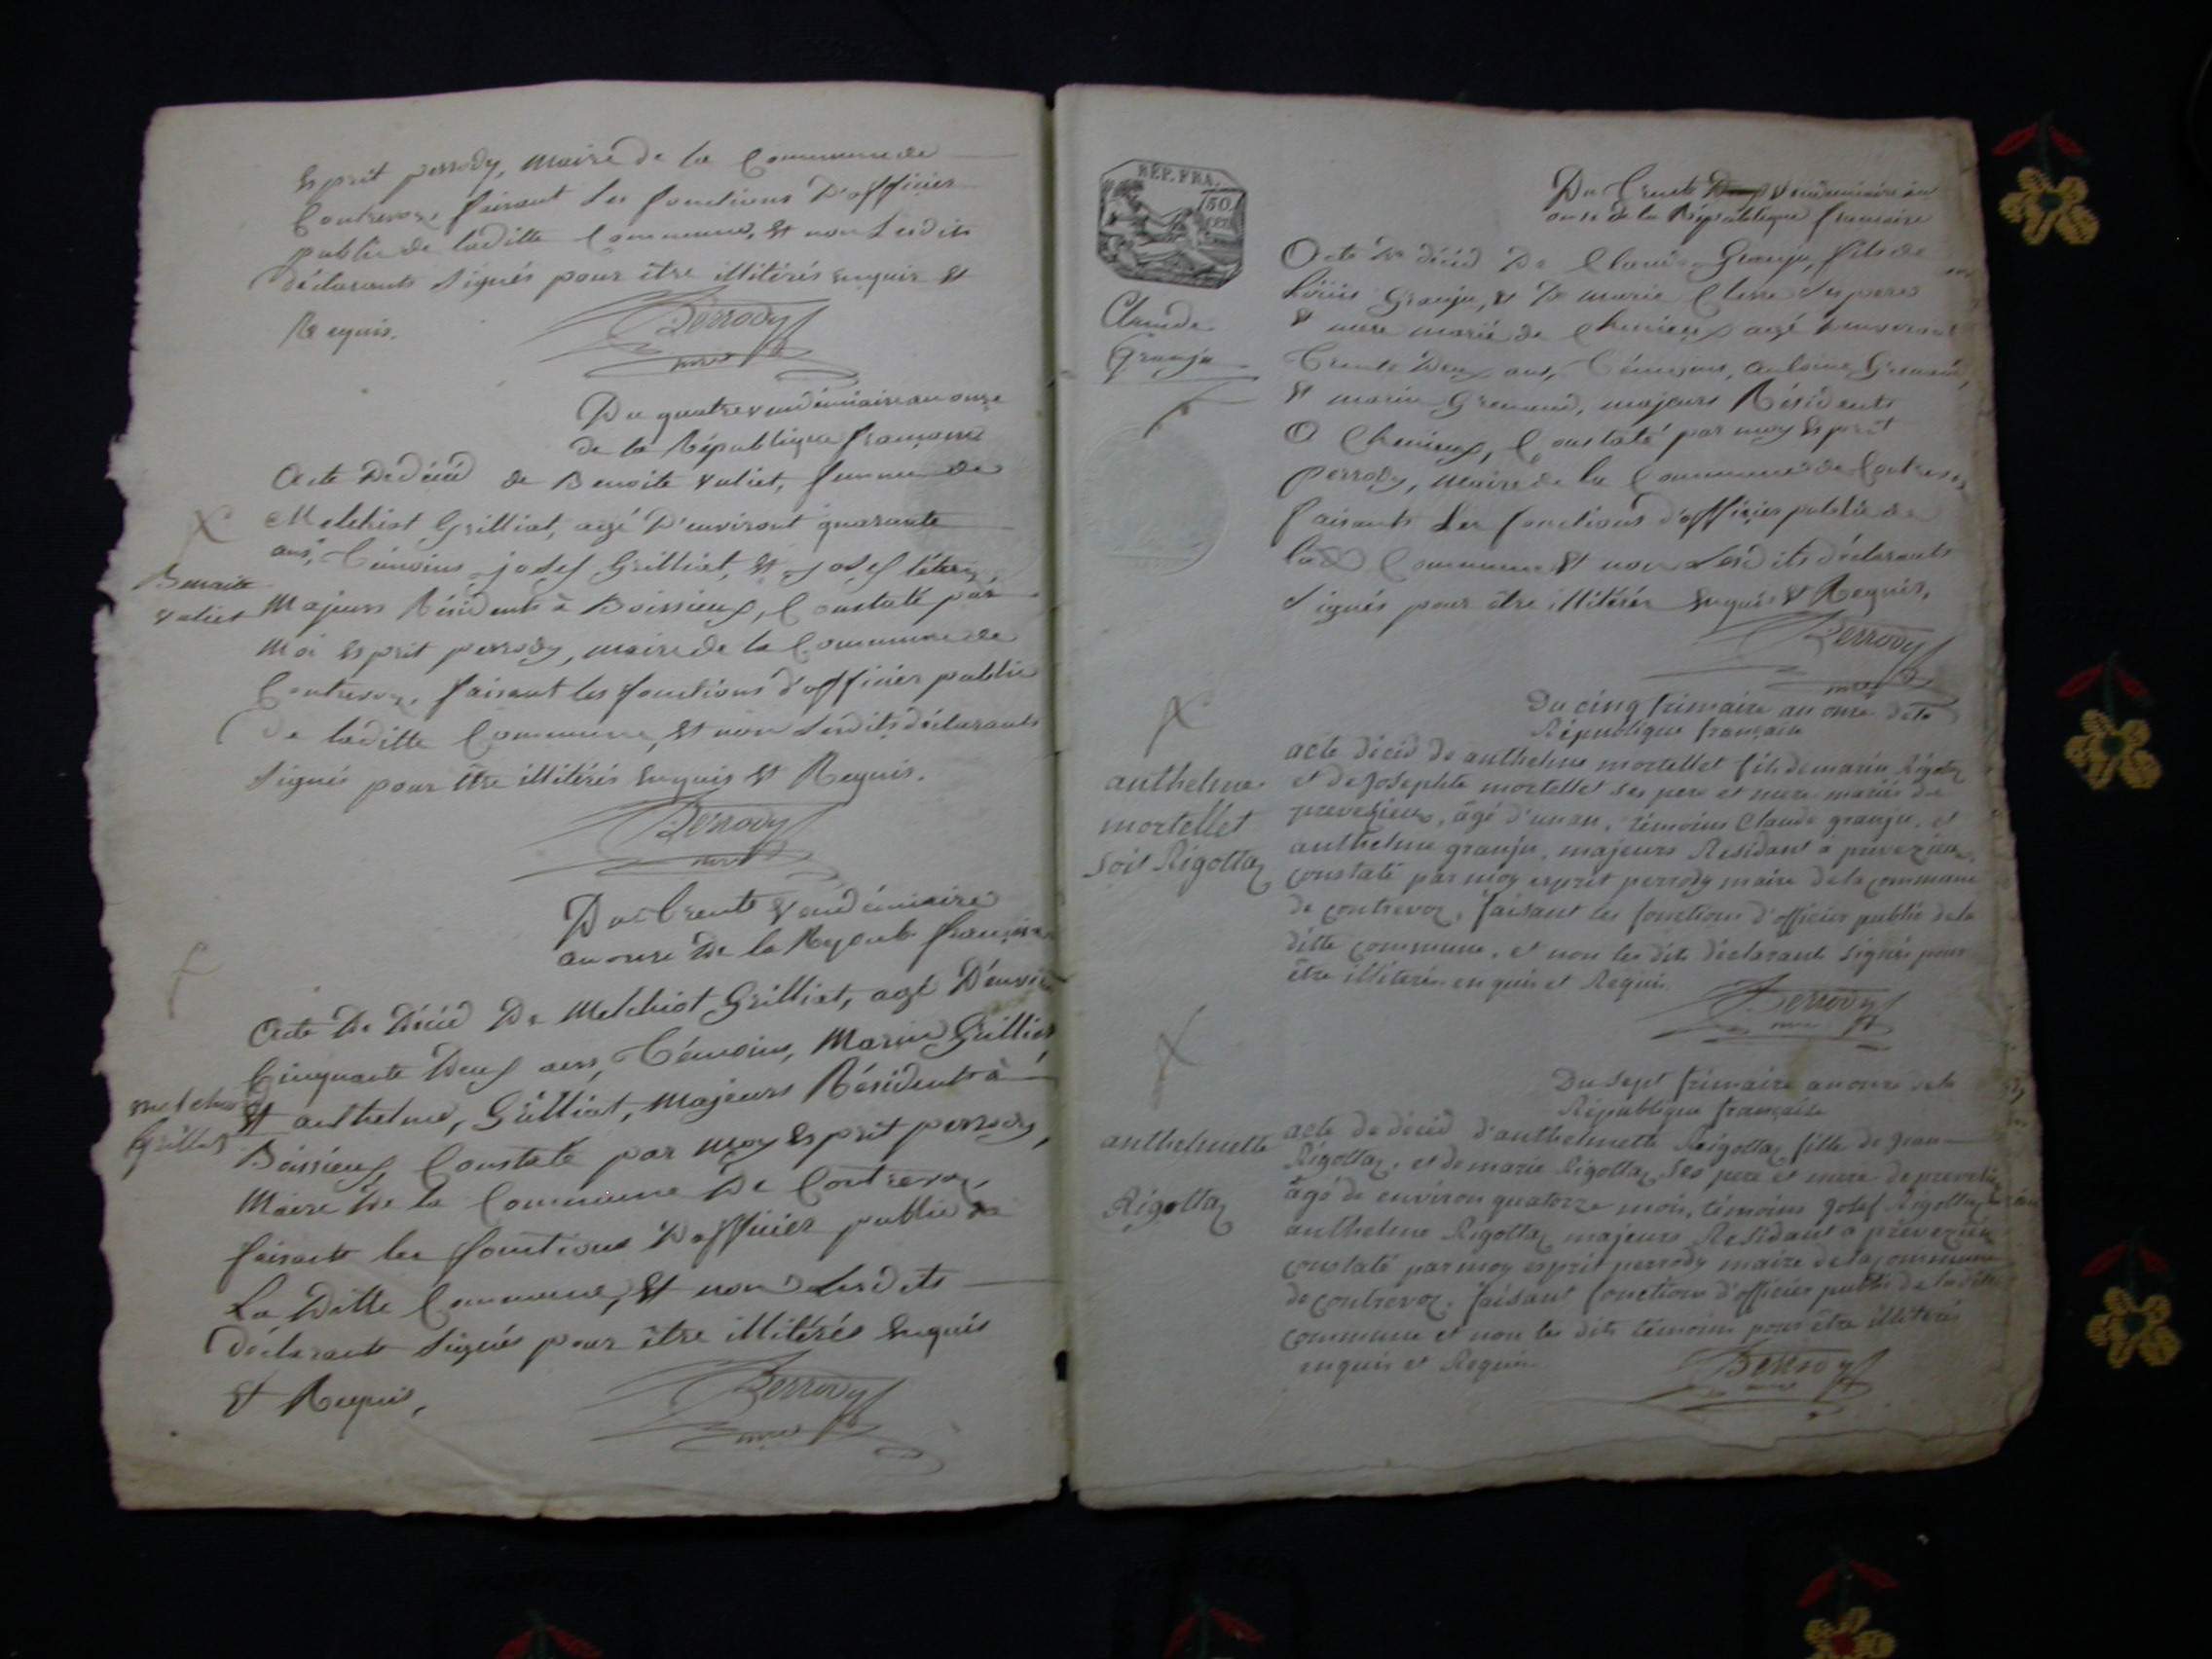 Esprit perrody, Maire de la Commune de
Contrevoz faisant Les fonctions D'officier
public de laditte Commune, Et non Lesdits
Déclarants Signés pour être illitérés enquis Et
Requis.
Perrody
mre
Du quatre vendémiaire an onze
de la République francaise
Acte De décéd de Benoite valiet, femme de
Melchiot Grilliat, agé D'environt quarante
ans, Témoins josef Grilliat, Et josef
Majeurs Résidents à Boissieux, Constaté par
Moi Esprit perrody, maire de la Commune de
Contrevoz, faisant les fonctions d'officier public
De laditte Commune, Et non Lesdits déclarants
Signés pour être illitérés Enquis Et Requis.
Benoite
valiet
Perrody
mre
Du Trente vendémiaire
an onze De la Repub. française
Acte De Décéd De Melchiot Grilliat, agé D'environ
Cinquante Deux ans, Témoins, Marin Grilliat
Et anthelme, Grilliat, Majeurs Résidents à
Boissieux, Constaté par Moy Esprit perrody,
Maire De la Commune De Contrevoz,
faisant les fonctions D'officier public de
La Ditte Commune, Et non Lesdits
Déclarants Signés pour être illitérés Enquis
Et Requis,
melchiot
Grilliat
Perrody
mre
REP. FRA.
50
Du Trente vendémiaire an
onze de la République francaise
Acte De décéd De Claude Granju, fils de
Loüis Granju, & De marie Clerre Ses peres
& mere marié de Chenieux agé d'environt
Trente Deux ans, Témoins, antoine Grenand,
Et marin Grenand, majeurs Résidents
A Chenieux, Constaté par moy Esprit
perrody, Maire de la Commune de Contrevoz,
faisants Les fonctions d'officier public de
lad Commune Et non Lesdits déclarants
Signés pour être illitérés Enquis & Requis,
Claude
Granju
Perrody
mre
Du cinq frimaire an onze de la
République française
acte décéd de anthelme mortellet fils de marin Rigottaz
et de Josephte mortellet ses pere et mere mariés de
prevezieu, âgé d'un an, témoins Claude granju, et
anthelme granju, majeurs Résidant à prevezieu,
constaté par moy esprit perrody maire de la commune
de contrevoz, faisant les fonctions d'officier public de la
ditte commune, et non les dits déclarants signés pour
être illiterés enquis et Requis
anthelme
mortellet
soit Rigottaz
Perrody
mre
Du sept frimaire an onze de la
République française
acte de décéd d'anthelmette Rigottaz fille de jean
Rigottaz, et de marie Rigottaz ses pere et mere de prevezieu
âgé de environ quatorze mois, témoins josef Rigottaz
anthelme Rigottaz majeurs Residant a prevezieu
constaté par moy esprit perrody maire de la commune
de contrevoz, faisant fonctions d'officier public de la ditte
commune et non les dits témoins pour être illiterés
enquis et Requis
anthelmette
Rigottaz
Perrody